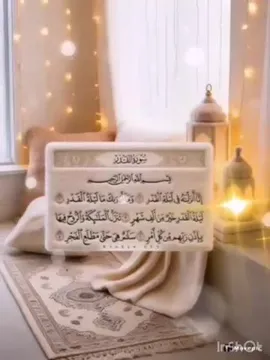 سُورَةُ الْقَدْرِ
بِسْمِ اللَّهِ الرَّحْمَٰنِ الرَّحِيمِ
إِنَّا أَنزَلْنَاهُ فِي لَيْلَةِ الْقَدْرِ ۝ وَمَا أَدْرَاكَ مَا لَيْلَةُ الْقَدْرِ ۝
لَيْلَةُ الْقَدْرِ خَيْرٌ مِّنْ أَلْفِ شَهْرٍ ۝ تَنَزَّلُ الْمَلَائِكَةُ وَالرُّوحُ فِيهَا
بِإِذْنِ رَبِّهِم مِّن كُلِّ أَمْرٍ ۝ سَلَامٌ هِيَ حَتَّىٰ مَطْلَعِ الْفَجْرِ ۝